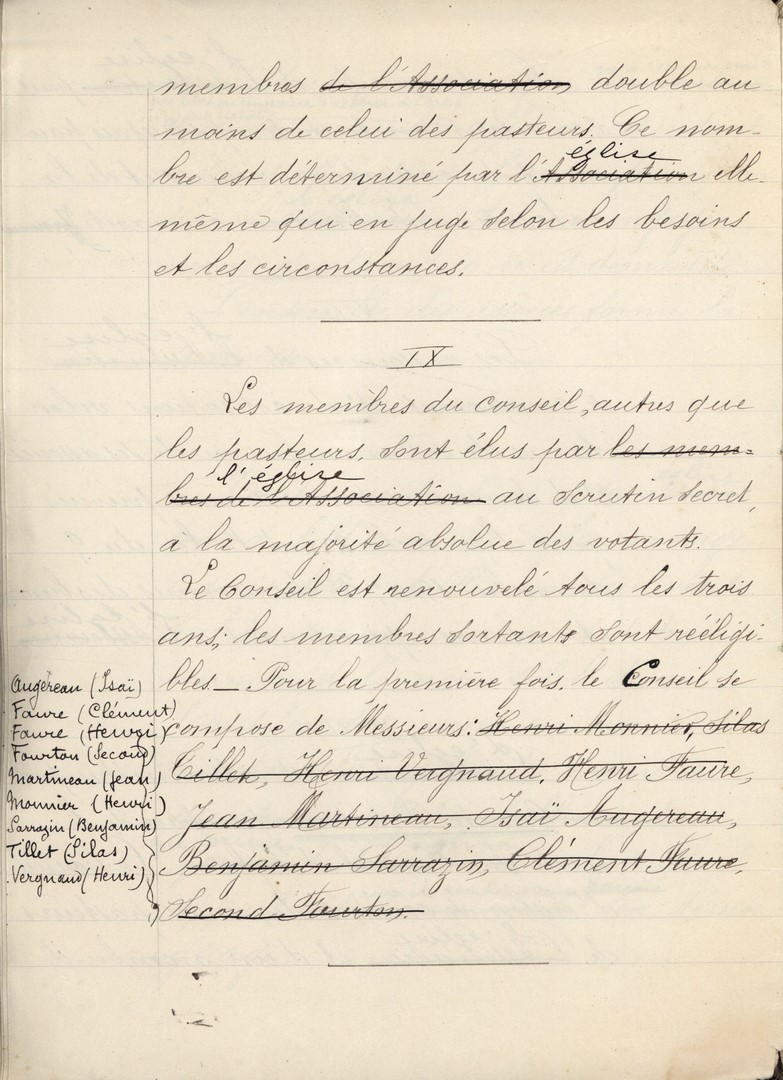 membres de l'Association double au
moins de celui des pasteurs. Ce nom-
église
bre est déterminé par l'Association elle-
même qui en juge selon les besoins
et les circonstances.
IX
Les membres du conseil, autres que
les pasteurs, sont élus par les mem-
l'église
bres de l'Association au scrutin secret,
a la majorité absolue des votants.
Le Conseil est renouvelé tous les trois
ans; les membres sortants sont rééligi-
bles._ Pour la première fois, le Conseil se
compose de Messieurs: Henri Monnier, Silas
Tillet, Henri Vergnaud, Henri Faure,
Jean Martineau, Isaï Augereau,
Benjamin Sarrazin, Clément Faure,
Second Fourton.
Augereau (Isaï)
Faure (Clément)
Faure (Henri)
Fourton (Second)
Martineau (Jean)
Monnier (Henri)
Sarrazin (Benjamin)
Tillet (Silas)
Vergnaud (Henri)